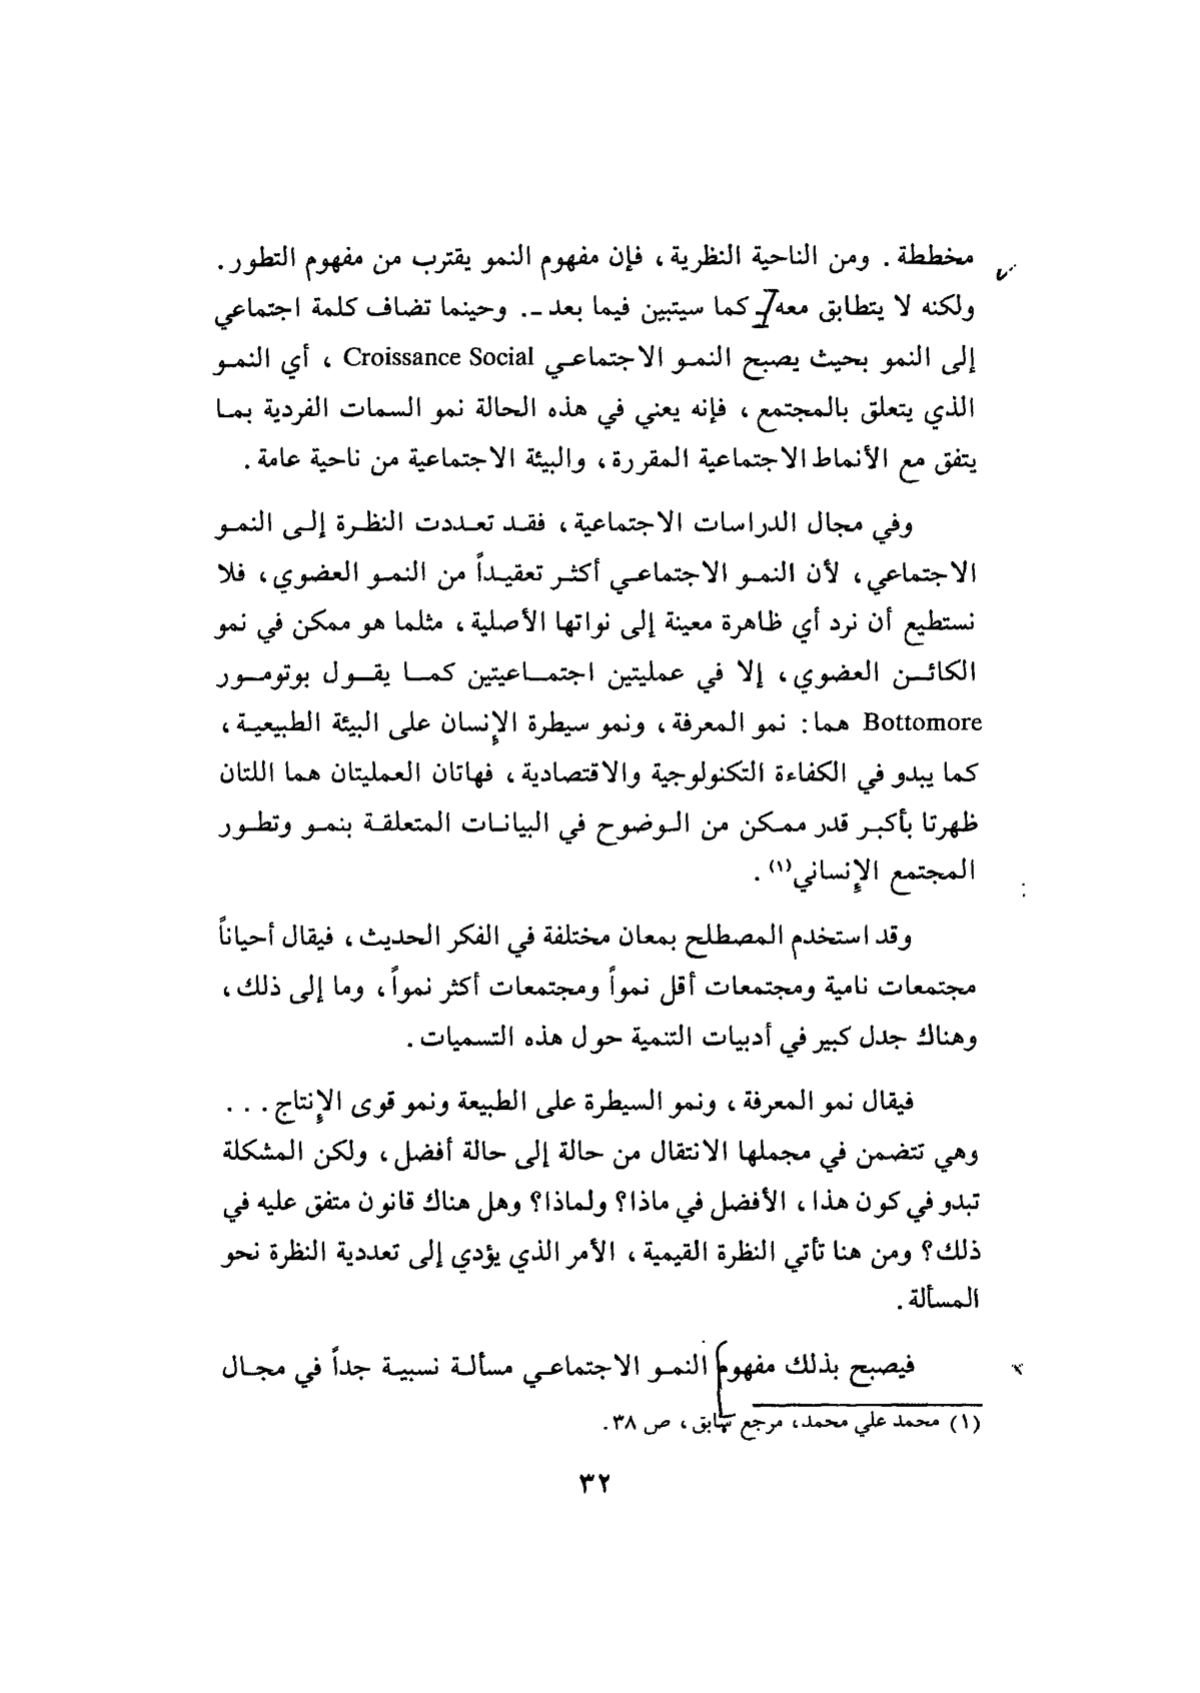 مخططة . ومن الناحية النظرية ، فإن مفهوم النمو يقترب من مفهوم التطور .
ولكنه لا يتطابق معه - كما سيتبين فيما بعد - . وحينما تضاف كلمة اجتماعي
إلى النمو بحيث يصبح النمـو الاجتماعـي Croissance Social ، أي النمـو
الذي يتعلق بالمجتمع ، فإنه يعني في هذه الحالة نمو السمات الفردية بمـا
يتفق مع الأنماط الاجتماعية المقررة ، والبيئة الاجتماعية من ناحية عامة .
وفي مجال الدراسات الاجتماعية ، فقـد تعـددت النظـرة إلـى النمـو
الاجتماعي ، لأن النمـو الاجتماعـي أكثـر تعقيـداً من النمـو العضوي ، فلا
نستطيع أن نرد أي ظاهرة معينة إلى نواتها الأصلية ، مثلما هو ممكن في نمو
الكائـن العضوي ، إلا في عمليتين اجتمـاعيتين كمـا يقـول بوتومـور
Bottomore هما : نمو المعرفة ، ونمو سيطرة الإنسان على البيئة الطبيعيـة ،
كما يبدو في الكفاءة التكنولوجية والاقتصادية ، فهاتان العمليتان هما اللتان
ظهرتا بأكبـر قدر ممـكن من الـوضوح في البيانـات المتعلقـة بنمـو وتطـور
المجتمع الإنساني(١) .
وقد استخدم المصطلح بمعان مختلفة في الفكر الحديث ، فيقال أحياناً
مجتمعات نامية ومجتمعات أقل نمواً ومجتمعات أكثر نمواً ، وما إلى ذلك ،
وهناك جدل كبير في أدبيات التنمية حول هذه التسميات .
فيقال نمو المعرفة ، ونمو السيطرة على الطبيعة ونمو قوى الإنتاج . . .
وهي تتضمن في مجملها الانتقال من حالة إلى حالة أفضل ، ولكن المشكلة
تبدو في كون هذا ، الأفضل في ماذا؟ ولماذا؟ وهل هناك قانون متفق عليه في
ذلك؟ ومن هنا تأتي النظرة القيمية ، الأمر الذي يؤدي إلى تعددية النظرة نحو
المسألة .
فيصبح بذلك مفهوم النمـو الاجتماعـي مسألـة نسبيـة جداً في مجـال
(١) محمد علي محمد ، مرجع سابق ، ص ٣٨ .
٣٢